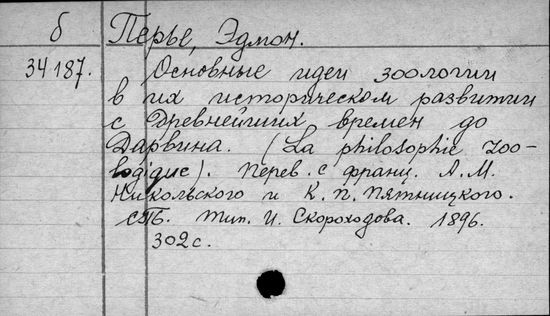 б Перье, Эдмон.
34187. Основные идеи зоологии
в их историческом развитии
с древнейших времен до
Дарвина. (La philosophie zoo-
logique). Перев. с франц. А. М.
Никольского и К. П. Пятницкого.
СПБ. Тип. И. Скороходова. 1896.
302 с.